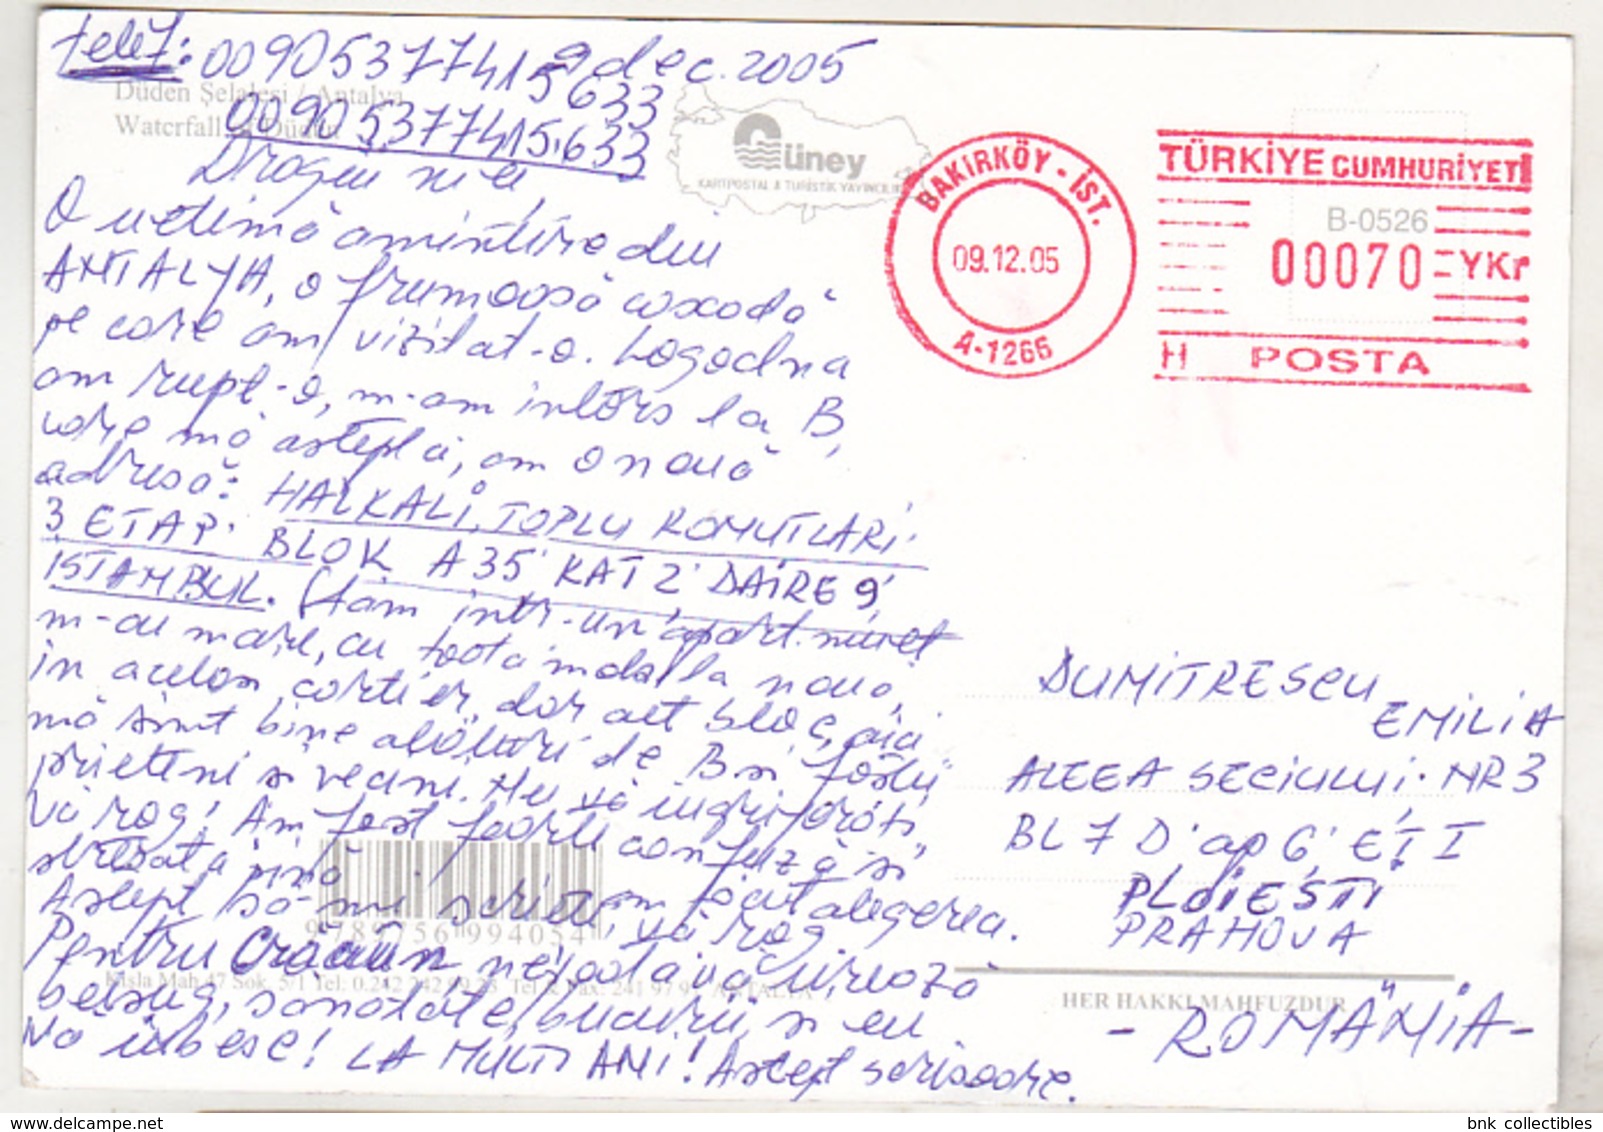 telef: 0090537741 5633
9 dec. 2005
Düden Şelalesi / Antalya
Waterfall Düden
00905377415.633
Güney
KARTPOSTAL & TURİSTİK YAYINCILIK
BAKIRKÖY - İST.
09.12.05
A-1266
TÜRKİYE CUMHURİYETİ
B-0526
00070 YKr
H POSTA
Dragii mei
O ultimă amintire din
ANTALYA, o frumoasă cascadă
pe care am vizitat-o. Logodna
am rupt-o, m-am întors la B,
care mă aștepta, am o nouă
adresă: HALKALI, TOPLU KOMUTLARI
3 ETAP. BLOK A 35 KAT 2 DAIRE 9
ISTAMBUL. Stam într-un apart. nu
m-au mare, cu toată mobila nouă,
în același cartier, dar alt bloc, aici
mă simt bine alături de B și foștii
prieteni și vecini. Nu vă îngrijorați,
vă rog! Am fost foarte confuză și
stresată până am făcut alegerea.
Aștept să-mi scrieți, vă rog.
9789756 994054
Pentru Crăciun nepoata vă urează
Kışla Mah 47 Sok. 5/1 Tel: 0.242 242 99 28 Tel & Fax: 241 97 9 ANTALYA
belșug, sănătate, bucurii, și eu
vă iubesc! LA MULȚI ANI! Aștept scrisoare.
DUMITRESCU
EMILIA
ALEEA SECIULUI. NR 3
BL 7 D ap 6, ET I
PLOIEȘTI
PRAHOVA
HER HAKKI MAHFUZDUR
- ROMÂNIA -
www.delcampe.net
bnk collectibles